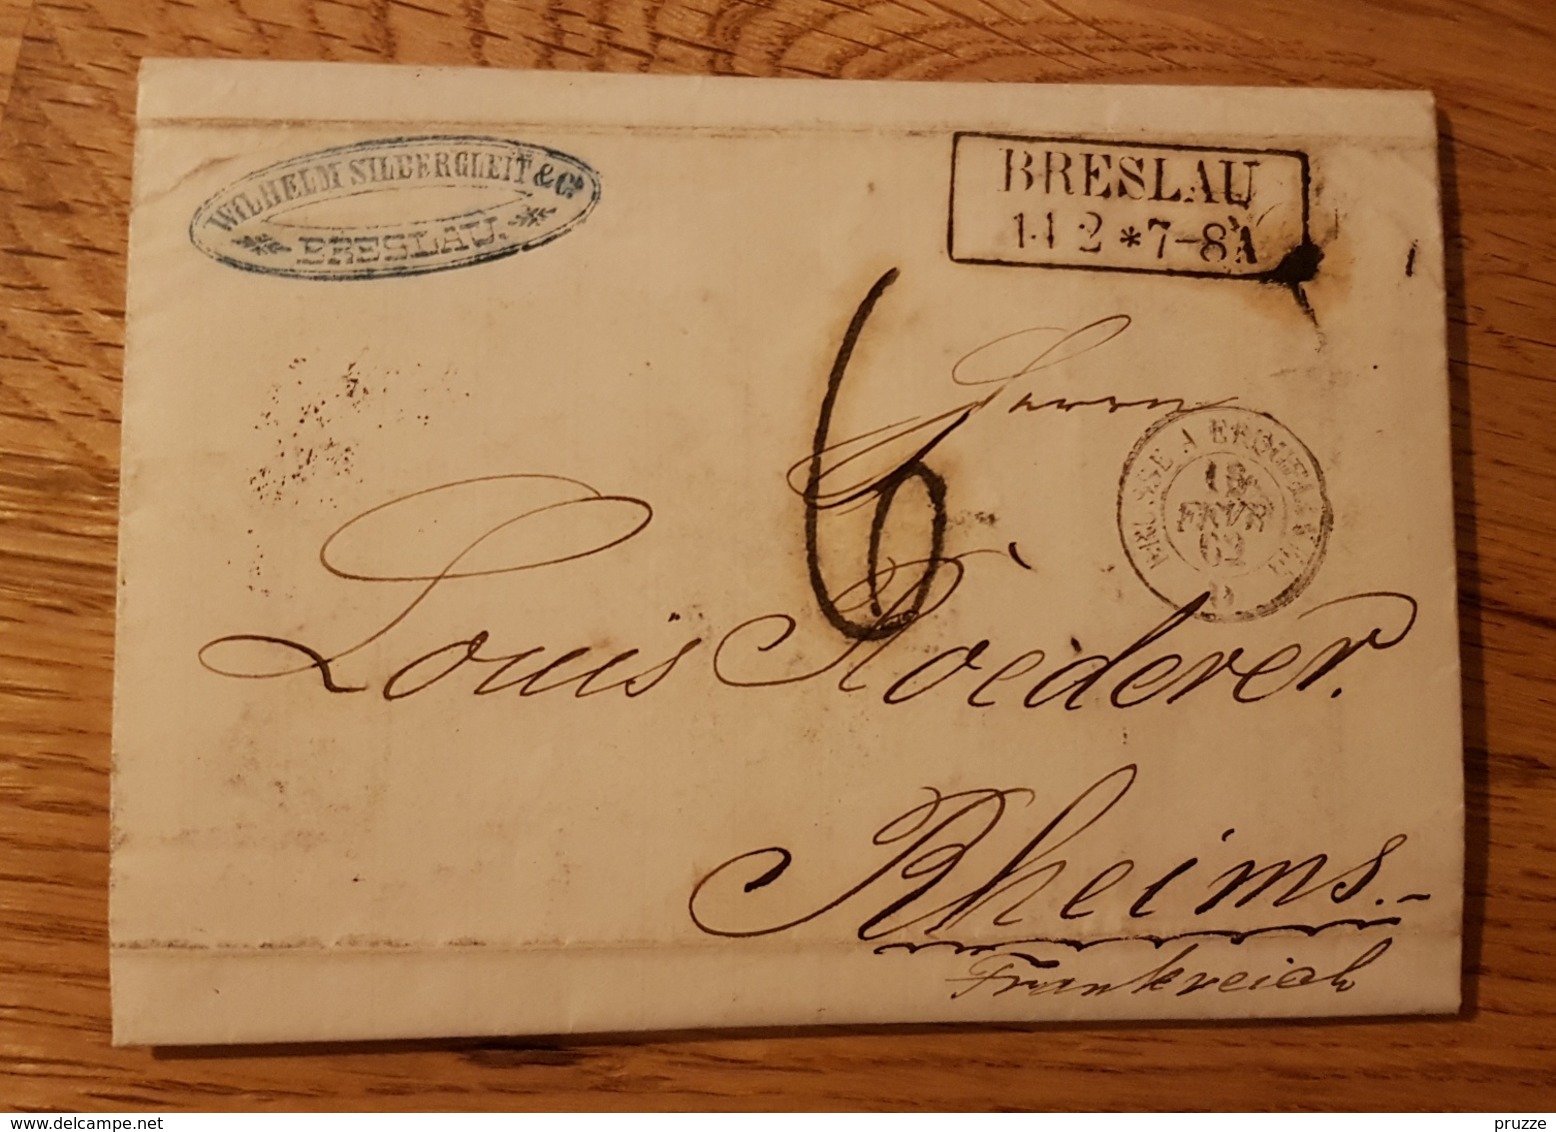 WILHELM SILBERGLEIT & Co
BRESLAU.
BRESLAU
14 2 * 7-8 A
6
Herrn
PRUSSE A ERQUELINES
FEVR
62
Louis Roederer.
Rheims.
Frankreich
delcampe.net
pruzze